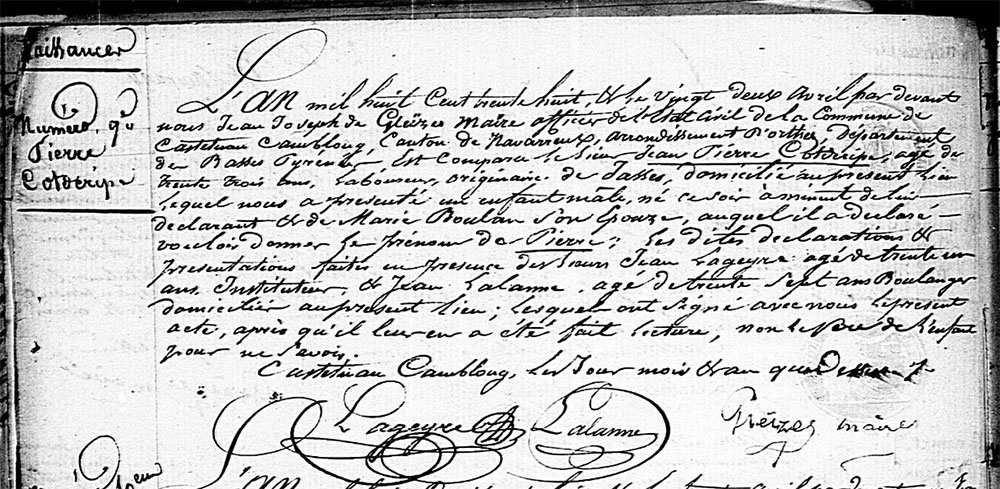 Naissances
Numéro
Pierre
Cotderipe
L'AN mil huit Cent trente huit, & le vingt deux Avril par devant
nous Jean Joseph de Gleïzes Maire officier de l'Etat Civil de la Commune de
Castetnau Camblong Canton de Navarrenx, arrondissement D'orthez, Departement
de Basses Pyrenées Est comparu le sieur Jean Pierre Cotderipe, agé de
trente trois ans, Laboureur, originaire de Jasses, domicilié au present Lieu
Lequel nous a presenté un enfant mâle, né ce soir à minuit de lui
declarant & de Marie Boulan son Epouze, auquel il a declaré
vouloir donner le prénom de Pierre; Les dites declarations &
presentations faites en presence des sieurs Jean Lageyre agé de trente un
ans Instituteur, & Jean Lalanne, agé de trente Sept ans Boulanger
domiciliés au present lieu; Lesquels ont Signé avec nous le present
acte, après qu'il leur en a été fait lecture, non le père de l'enfant
pour ne savoir.
Castetnau Camblong, les Jour mois & an que Dessus
Lageyre Lalanne Gleïzes maire
L'AN